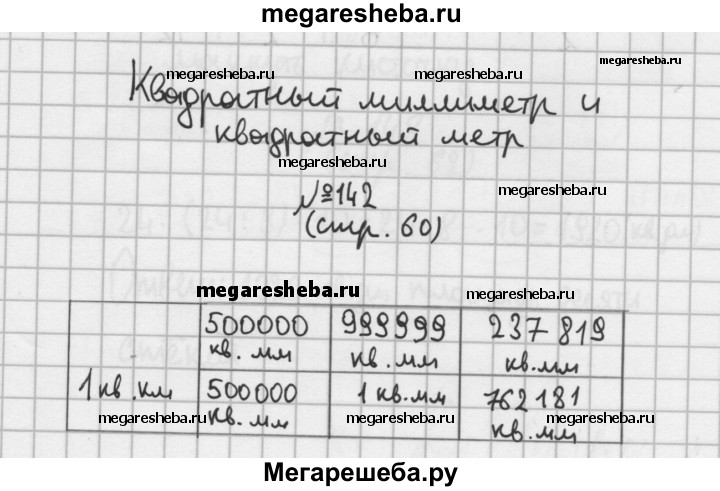 megaresheba.ru
megaresheba.ru
megaresheba.ru megaresheba.ru
Квадратный миллиметр и
квадратный метр
megaresheba.ru
№142
megaresheba.ru
(стр. 60)
megaresheba.ru megaresheba.ru
500000 999999 237 819
кв. мм кв. мм кв.мм
1 кв. км 500000 1 кв.мм 762 181
кв. мм кв.мм
megaresheba.ru megaresheba.ru megaresheba.ru
Мегарешеба.ру